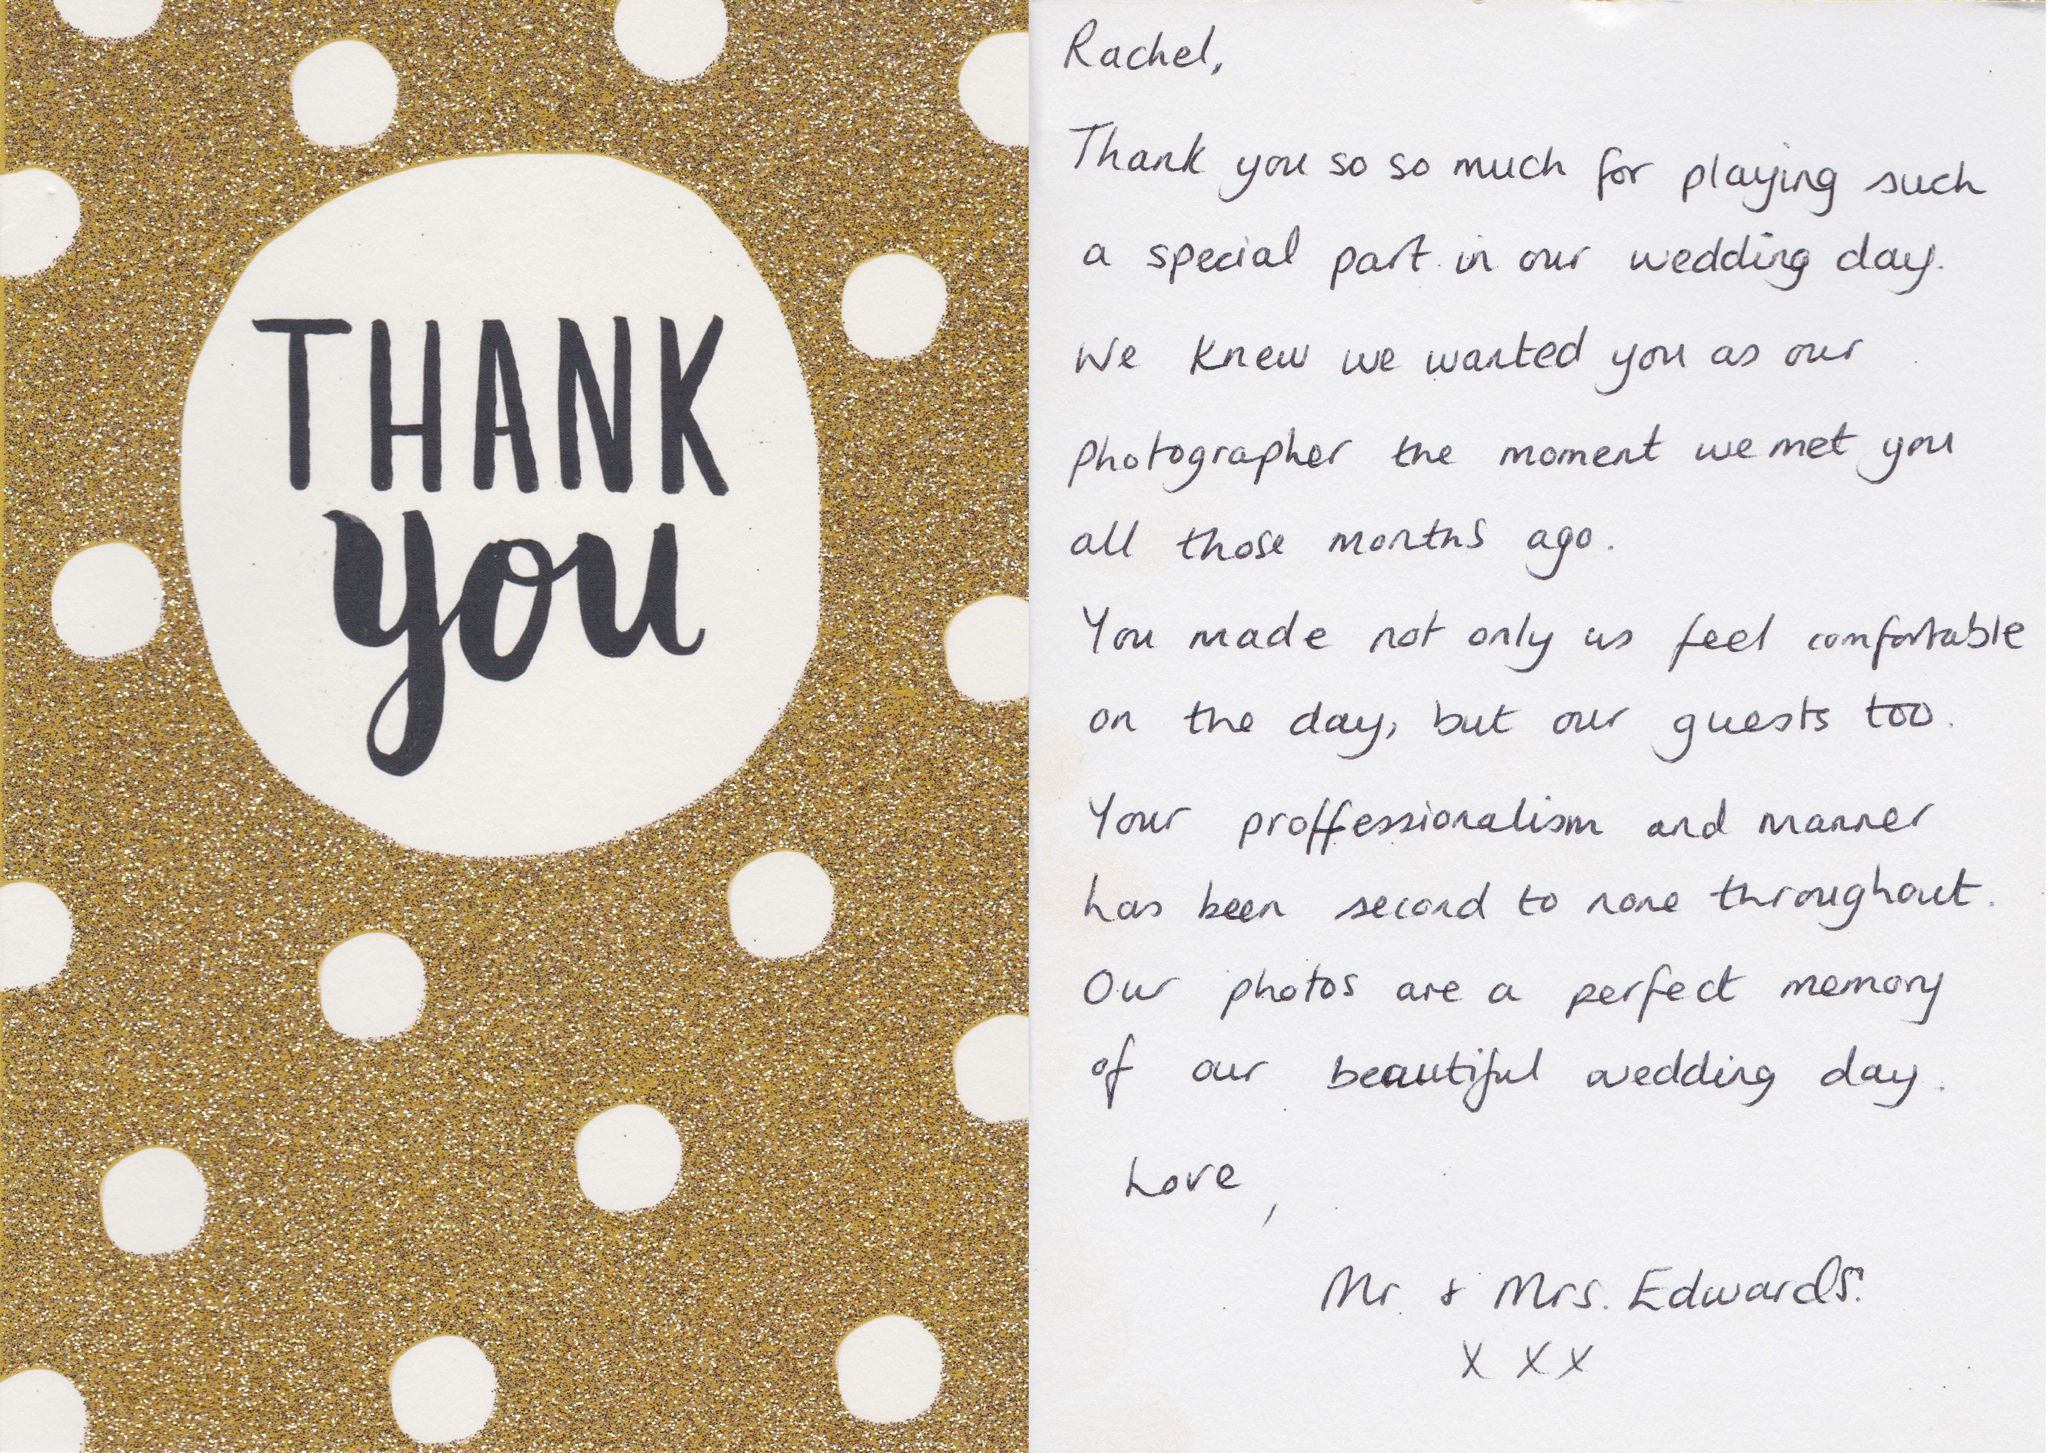 THANK
you
Rachel,
Thank you so so much for playing such
a special part in our wedding day.
We knew we wanted you as our
photographer the moment we met you
all those months ago.
You made not only us feel comfortable
on the day, but our guests too.
Your proffessionalism and manner
has been second to none throughout.
Our photos are a perfect memory
of our beautiful wedding day.
Love,
Mr. + Mrs. Edwards!
x x x